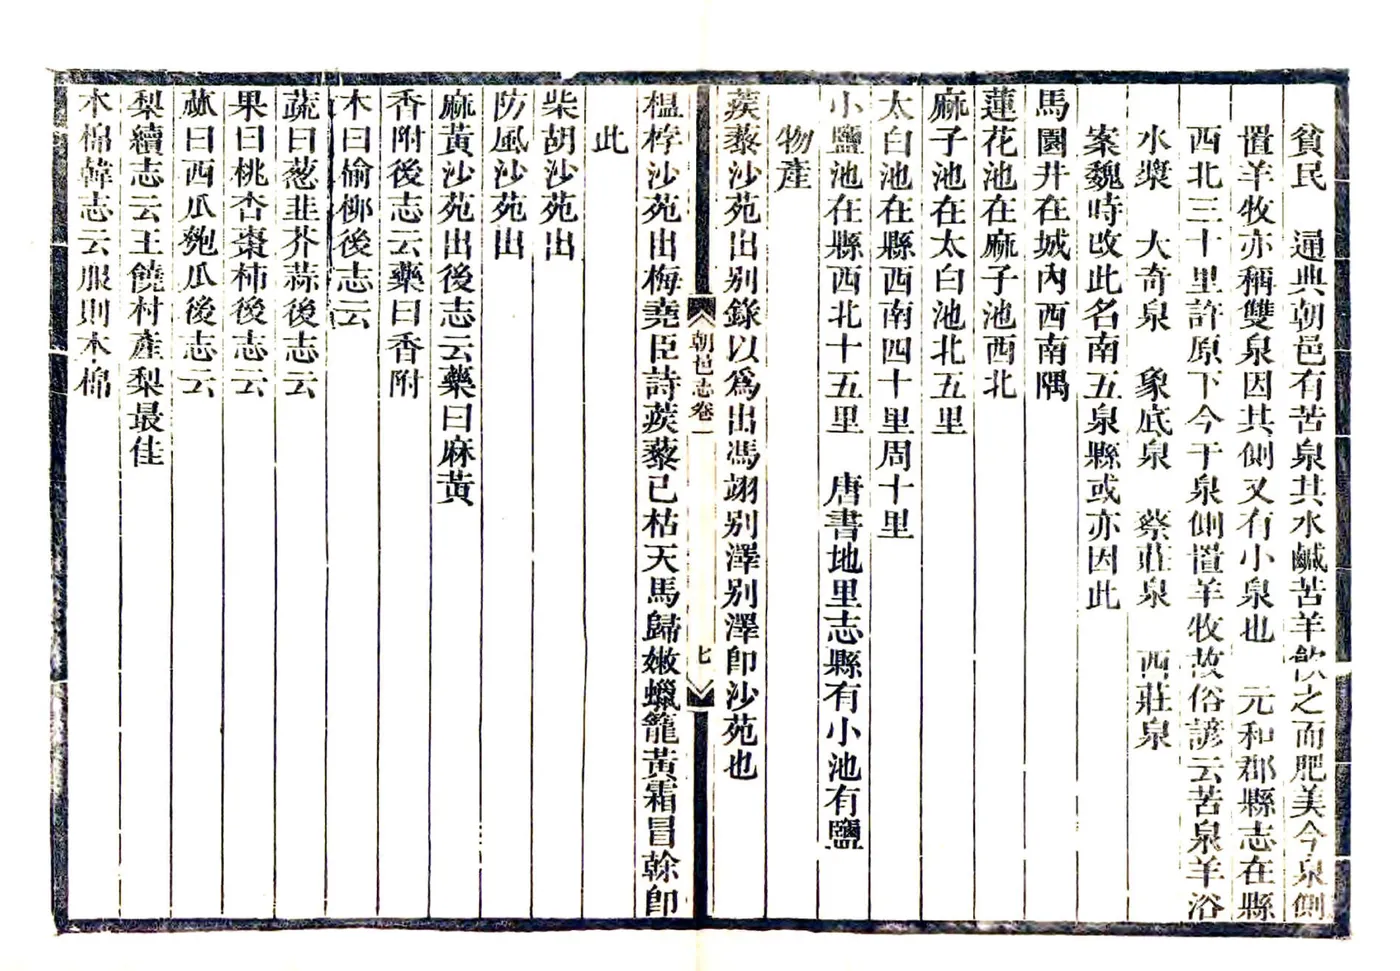 貧民　通典朝邑有苦泉其水鹹苦羊飲之而肥美今泉側
置羊牧亦稱雙泉因其側又有小泉也　元和郡縣志在縣
西北三十里許原下今于泉側置羊牧故俗諺云苦泉羊浴
水漿　大奇泉　象底泉　蔡莊泉　西莊泉
案魏時改此名南五泉縣或亦因此
馬園井在城內西南隅
蓮花池在麻子池西北
麻子池在太白池北五里
太白池在縣西南四十里周十里
小鹽池在縣西北十五里　唐書地里志縣有小池有鹽
物產
蒺藜沙苑出別錄以爲出馮翊別澤別澤卽沙苑也
朝邑志卷一
七
榲桲沙苑出梅堯臣詩蒺藜已枯天馬歸嫩蠟籠黃霜冒榦卽
此
柴胡沙苑出
防風沙苑出
麻黃沙苑出後志云藥曰麻黃
香附後志云藥曰香附
木曰楡柳後志云
蔬曰葱韭芥蒜後志云
果曰桃杏棗柿後志云
蓏曰西瓜匏瓜後志云
梨續志云王饒村產梨最佳
木棉韓志云服則木棉